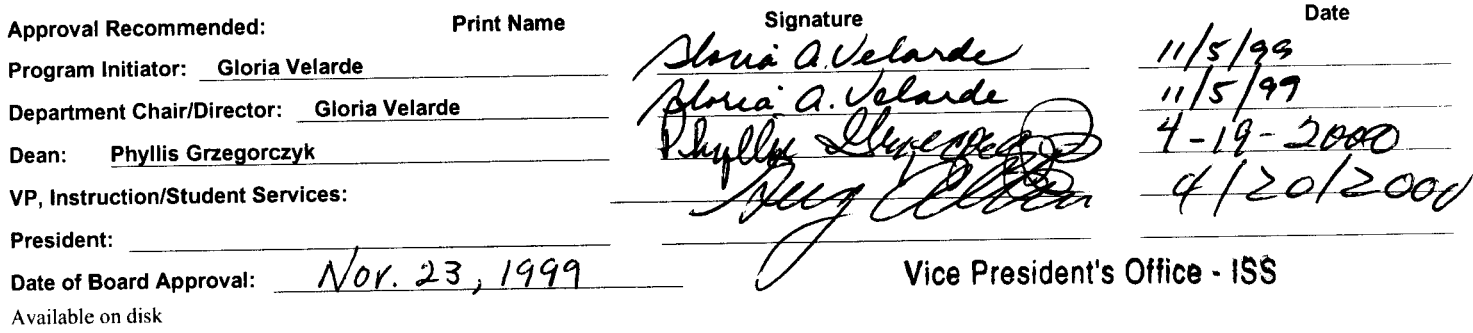 Approval Recommended: Print Name Signature Date
Program Initiator: Gloria Velarde Gloria A. Velarde 11/5/99
Department Chair/Director: Gloria Velarde Gloria A. Velarde 11/5/99
Dean: Phyllis Grzegorczyk Phyllis Grzegorczyk 4-19-2000
VP, Instruction/Student Services: 4/20/2000
President:
Date of Board Approval: Nov. 23, 1999 Vice President's Office - ISS
Available on disk